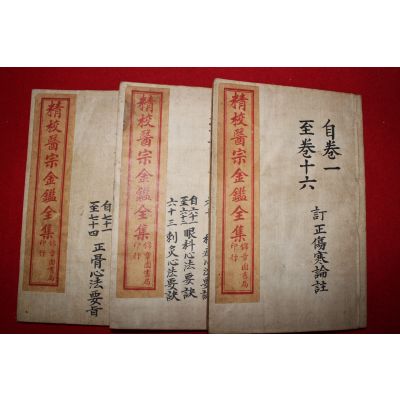 精校醫宗金鑑全集
錦章圖書局
印行
自卷一
至卷十六
訂正傷寒論註
精校醫宗金鑑全集
錦章圖書局
印行
自六十一
至六十二
眼科心法要訣
六十三 刺灸心法要訣
精校醫宗金鑑全集
錦章圖書局
印行
自七十一
至七十四
正骨心法要旨